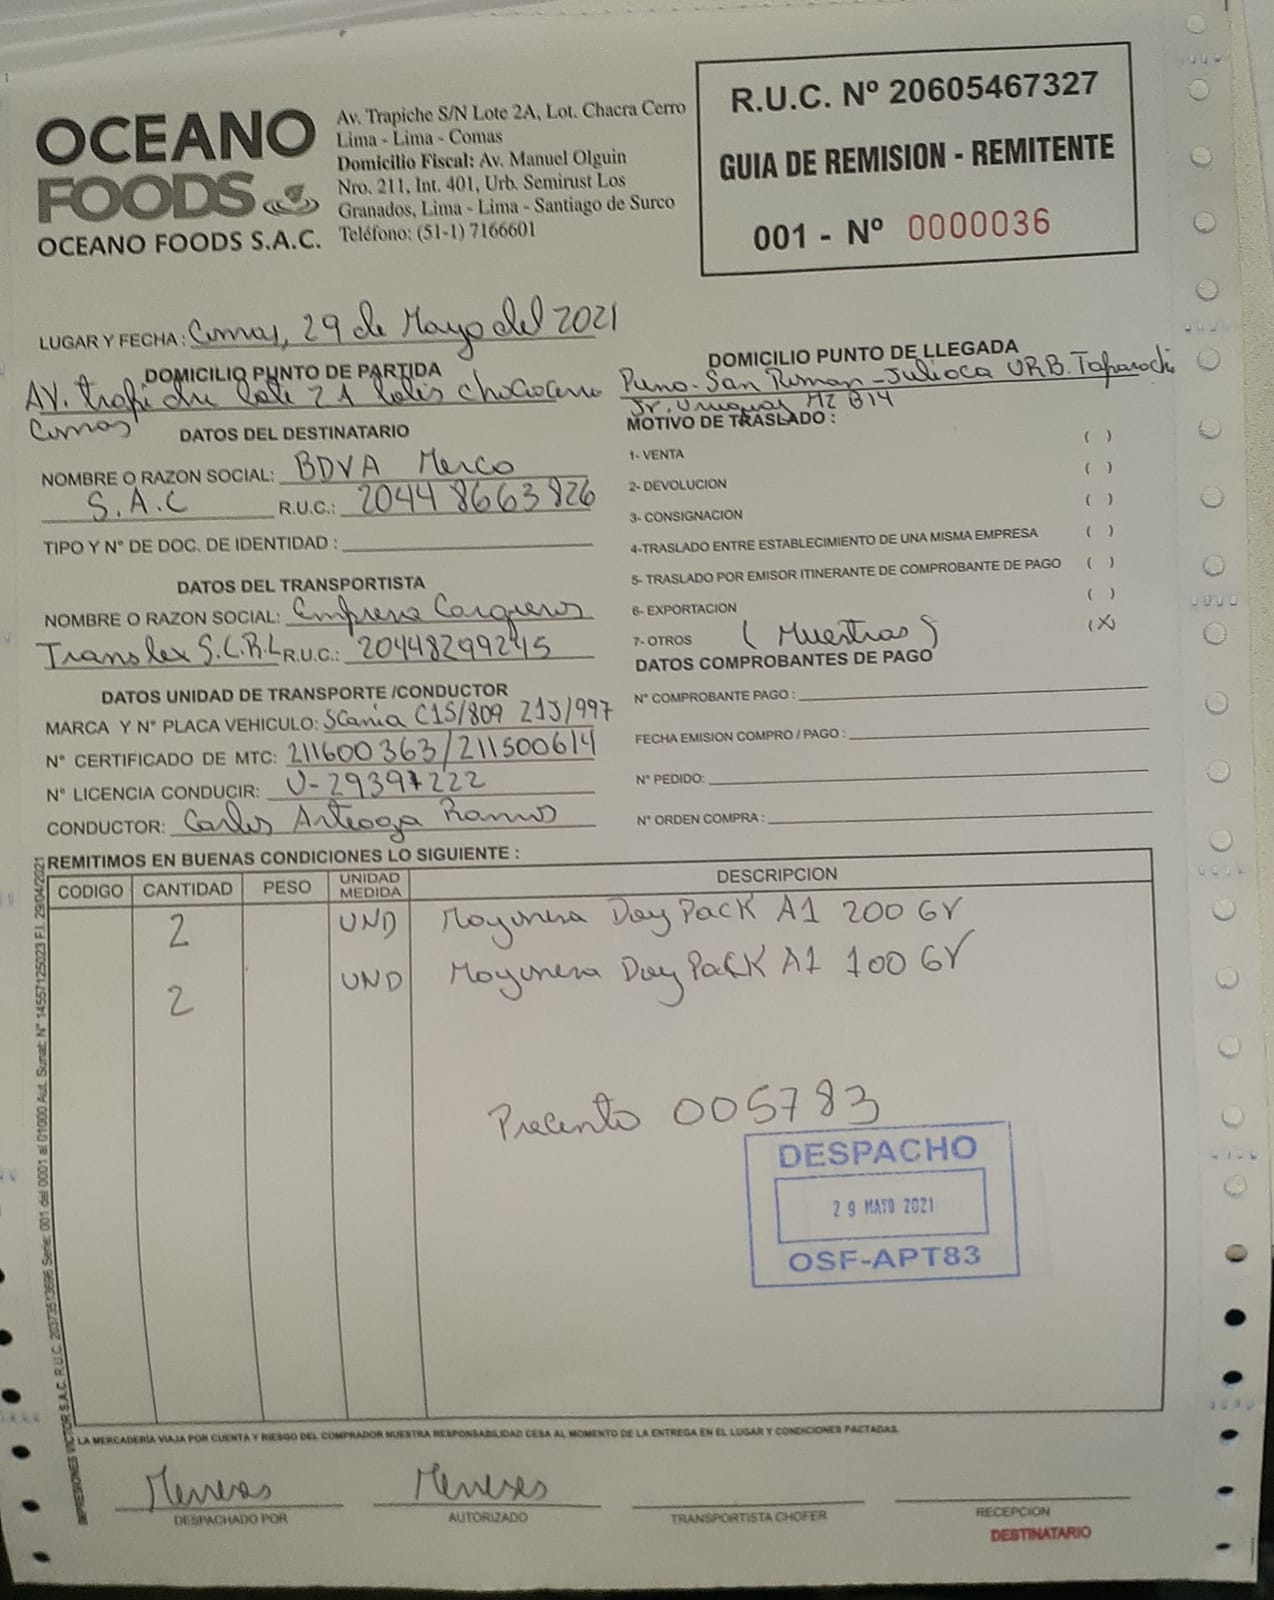 OCEANO
FOODS
OCEANO FOODS S.A.C.
Av. Trapiche S/N Lote 2A, Lot. Chacra Cerro
Lima - Lima - Comas
Domicilio Fiscal: Av. Manuel Olguin
Nro. 211, Int. 401, Urb. Semirust Los
Granados, Lima - Lima - Santiago de Surco
Teléfono: (51-1) 7166601
R.U.C. Nº 20605467327
GUIA DE REMISION - REMITENTE
001 - Nº 0000036
LUGAR Y FECHA: Comas, 29 de Mayo del 2021
DOMICILIO PUNTO DE PARTIDA
AV. lote
Comas
DATOS DEL DESTINATARIO
NOMBRE O RAZON SOCIAL: BDVA Merco
S.A.C R.U.C.: 20448663826
TIPO Y Nº DE DOC. DE IDENTIDAD :
DATOS DEL TRANSPORTISTA
NOMBRE O RAZON SOCIAL: Empresa Cargueros
Translex S.C.R.L R.U.C.: 20448299245
DATOS UNIDAD DE TRANSPORTE /CONDUCTOR
MARCA Y Nº PLACA VEHICULO: Scania C1S/809 Z1J/997
Nº CERTIFICADO DE MTC: 211600363/211500614
Nº LICENCIA CONDUCIR: U-29397222
CONDUCTOR: Carlos Arteaga Ramos
DOMICILIO PUNTO DE LLEGADA
Puno-San Roman-Julioca URB. Taparachi
Jr. Uruguay MZ B14
MOTIVO DE TRASLADO :
1- VENTA ( )
2- DEVOLUCION ( )
3- CONSIGNACION ( )
4-TRASLADO ENTRE ESTABLECIMIENTO DE UNA MISMA EMPRESA ( )
5- TRASLADO POR EMISOR ITINERANTE DE COMPROBANTE DE PAGO ( )
6- EXPORTACION ( )
7- OTROS (Muestras) (X)
DATOS COMPROBANTES DE PAGO
Nº COMPROBANTE PAGO :
FECHA EMISION COMPRO / PAGO :
Nº PEDIDO:
Nº ORDEN COMPRA :
REMITIMOS EN BUENAS CONDICIONES LO SIGUIENTE :
CODIGO CANTIDAD PESO UNIDAD MEDIDA DESCRIPCION
2 UND Mayonesa Doy Pack A1 200 Gr
2 UND Mayonesa Doy Pack A1 100 Gr
Precinto 005783
DESPACHO
29 MAYO 2021
OSF-APT83
IMPRESIONES VICTOR S.A.C. R.U.C. 20373513696 Serie: 001 del 0001 al 01000 Aut. Sunat: Nº 14557125023 F.I. 29/04/2021
LA MERCADERÍA VIAJA POR CUENTA Y RIESGO DEL COMPRADOR NUESTRA RESPONSABILIDAD CESA AL MOMENTO DE LA ENTREGA EN EL LUGAR Y CONDICIONES PACTADAS.
Meneses Meneses
DESPACHADO POR AUTORIZADO TRANSPORTISTA CHOFER RECEPCION
DESTINATARIO